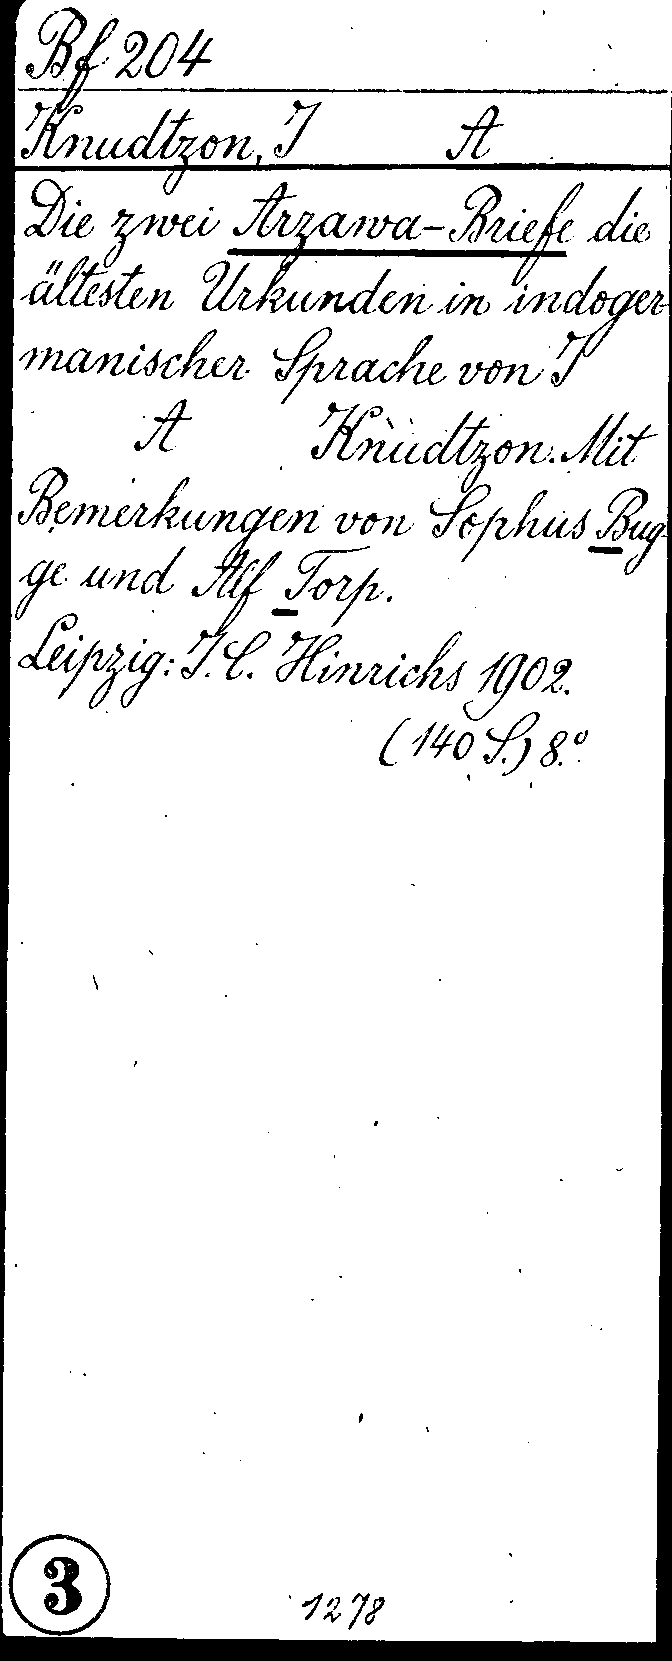 Bf 204
Knudtzon, J A
Die zwei Arzawa-Briefe die
ältesten Urkunden in indoger-
manischer Sprache von J
A Knudtzon. Mit
Bemerkungen von Sophus Bug-
ge und Alf Torp.
Leipzig: J. C. Hinrichs 1902.
(140 S.) 8.º
3
1278